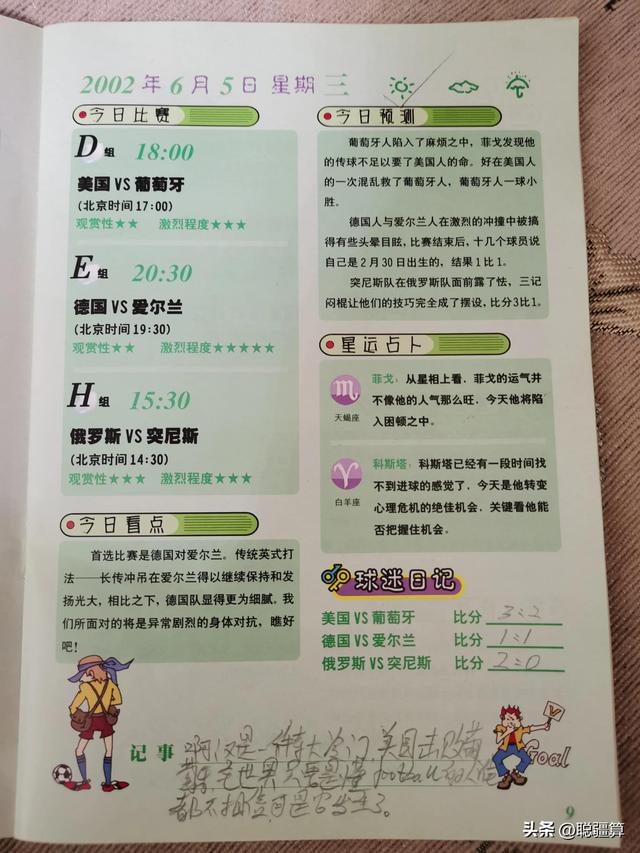 2002年6月5日星期三
今日比赛
D组 18:00
美国 VS 葡萄牙
(北京时间17:00)
观赏性★★ 激烈程度★★★
E组 20:30
德国 VS 爱尔兰
(北京时间19:30)
观赏性★★ 激烈程度★★★★★
H组 15:30
俄罗斯 VS 突尼斯
(北京时间14:30)
观赏性★★★ 激烈程度★★★
今日看点
首选比赛是德国对爱尔兰。传统英式打
法——长传冲吊在爱尔兰得以继续保持和发
扬光大，相比之下，德国队显得更为细腻。我
们所面对的将是异常剧烈的身体对抗，瞧好
吧！
今日预测
葡萄牙人陷入了麻烦之中，菲戈发现他
的传球不足以要了美国人的命。好在美国人
的一次混乱救了葡萄牙人，葡萄牙人一球小
胜。
德国人与爱尔兰人在激烈的冲撞中被搞
得有些头晕目眩，比赛结束后，十几个球员说
自己是2月30日出生的，结果1比1。
突尼斯队在俄罗斯队面前露了怯，三记
闷棍让他们的技巧完全成了摆设，比分3比1。
星运占卜
天蝎座
菲戈：从星相上看，菲戈的运气并
不像他的人气那么旺，今天他将陷
入困顿之中。
白羊座
科斯塔：科斯塔已经有一段时间找
不到进球的感觉了，今天是他转变
心理危机的绝佳机会，关键看他能
否把握住机会。
球迷日记
美国 VS 葡萄牙 比分 3:2
德国 VS 爱尔兰 比分 1:1
俄罗斯 VS 突尼斯 比分 2:0
记事 啊,仅是一件特大冷门,美国击败葡
萄牙,全世界只要是懂football的人
都不相信,可是它发生了。
V
Goal
9
头条 @聪疆算